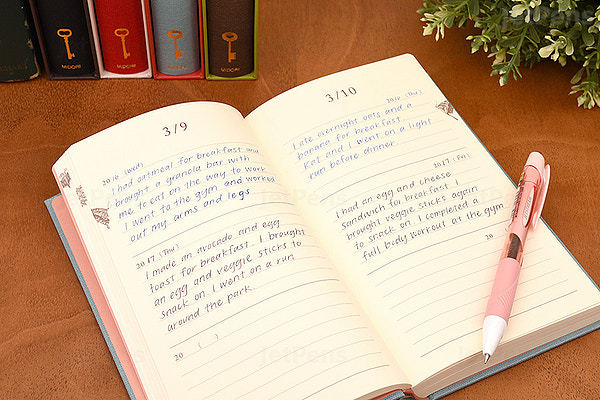 MIDORI
MIDORI
MIDORI
MIDORI
3/9
2016 (Wed)
I had oatmeal for breakfast and
brought a granola bar with
me to eat on the way to work
I went to the gym and worked
out my arms and legs
2017 (Thu)
I made an avocado and egg
toast for breakfast. I brought
an egg and veggie sticks to
snack on. I went on a run
around the park.
20 ( )
3/10
2016 (Thu)
I ate overnight oats and a
banana for breakfast.
Kat and I went on a light
run before dinner
2017 (Fri)
I had an egg and cheese
sandwich for breakfast I
brought veggie sticks again
to snack on I completed a
full body workout at the gym
20
JetPens
JetPens
JetPens